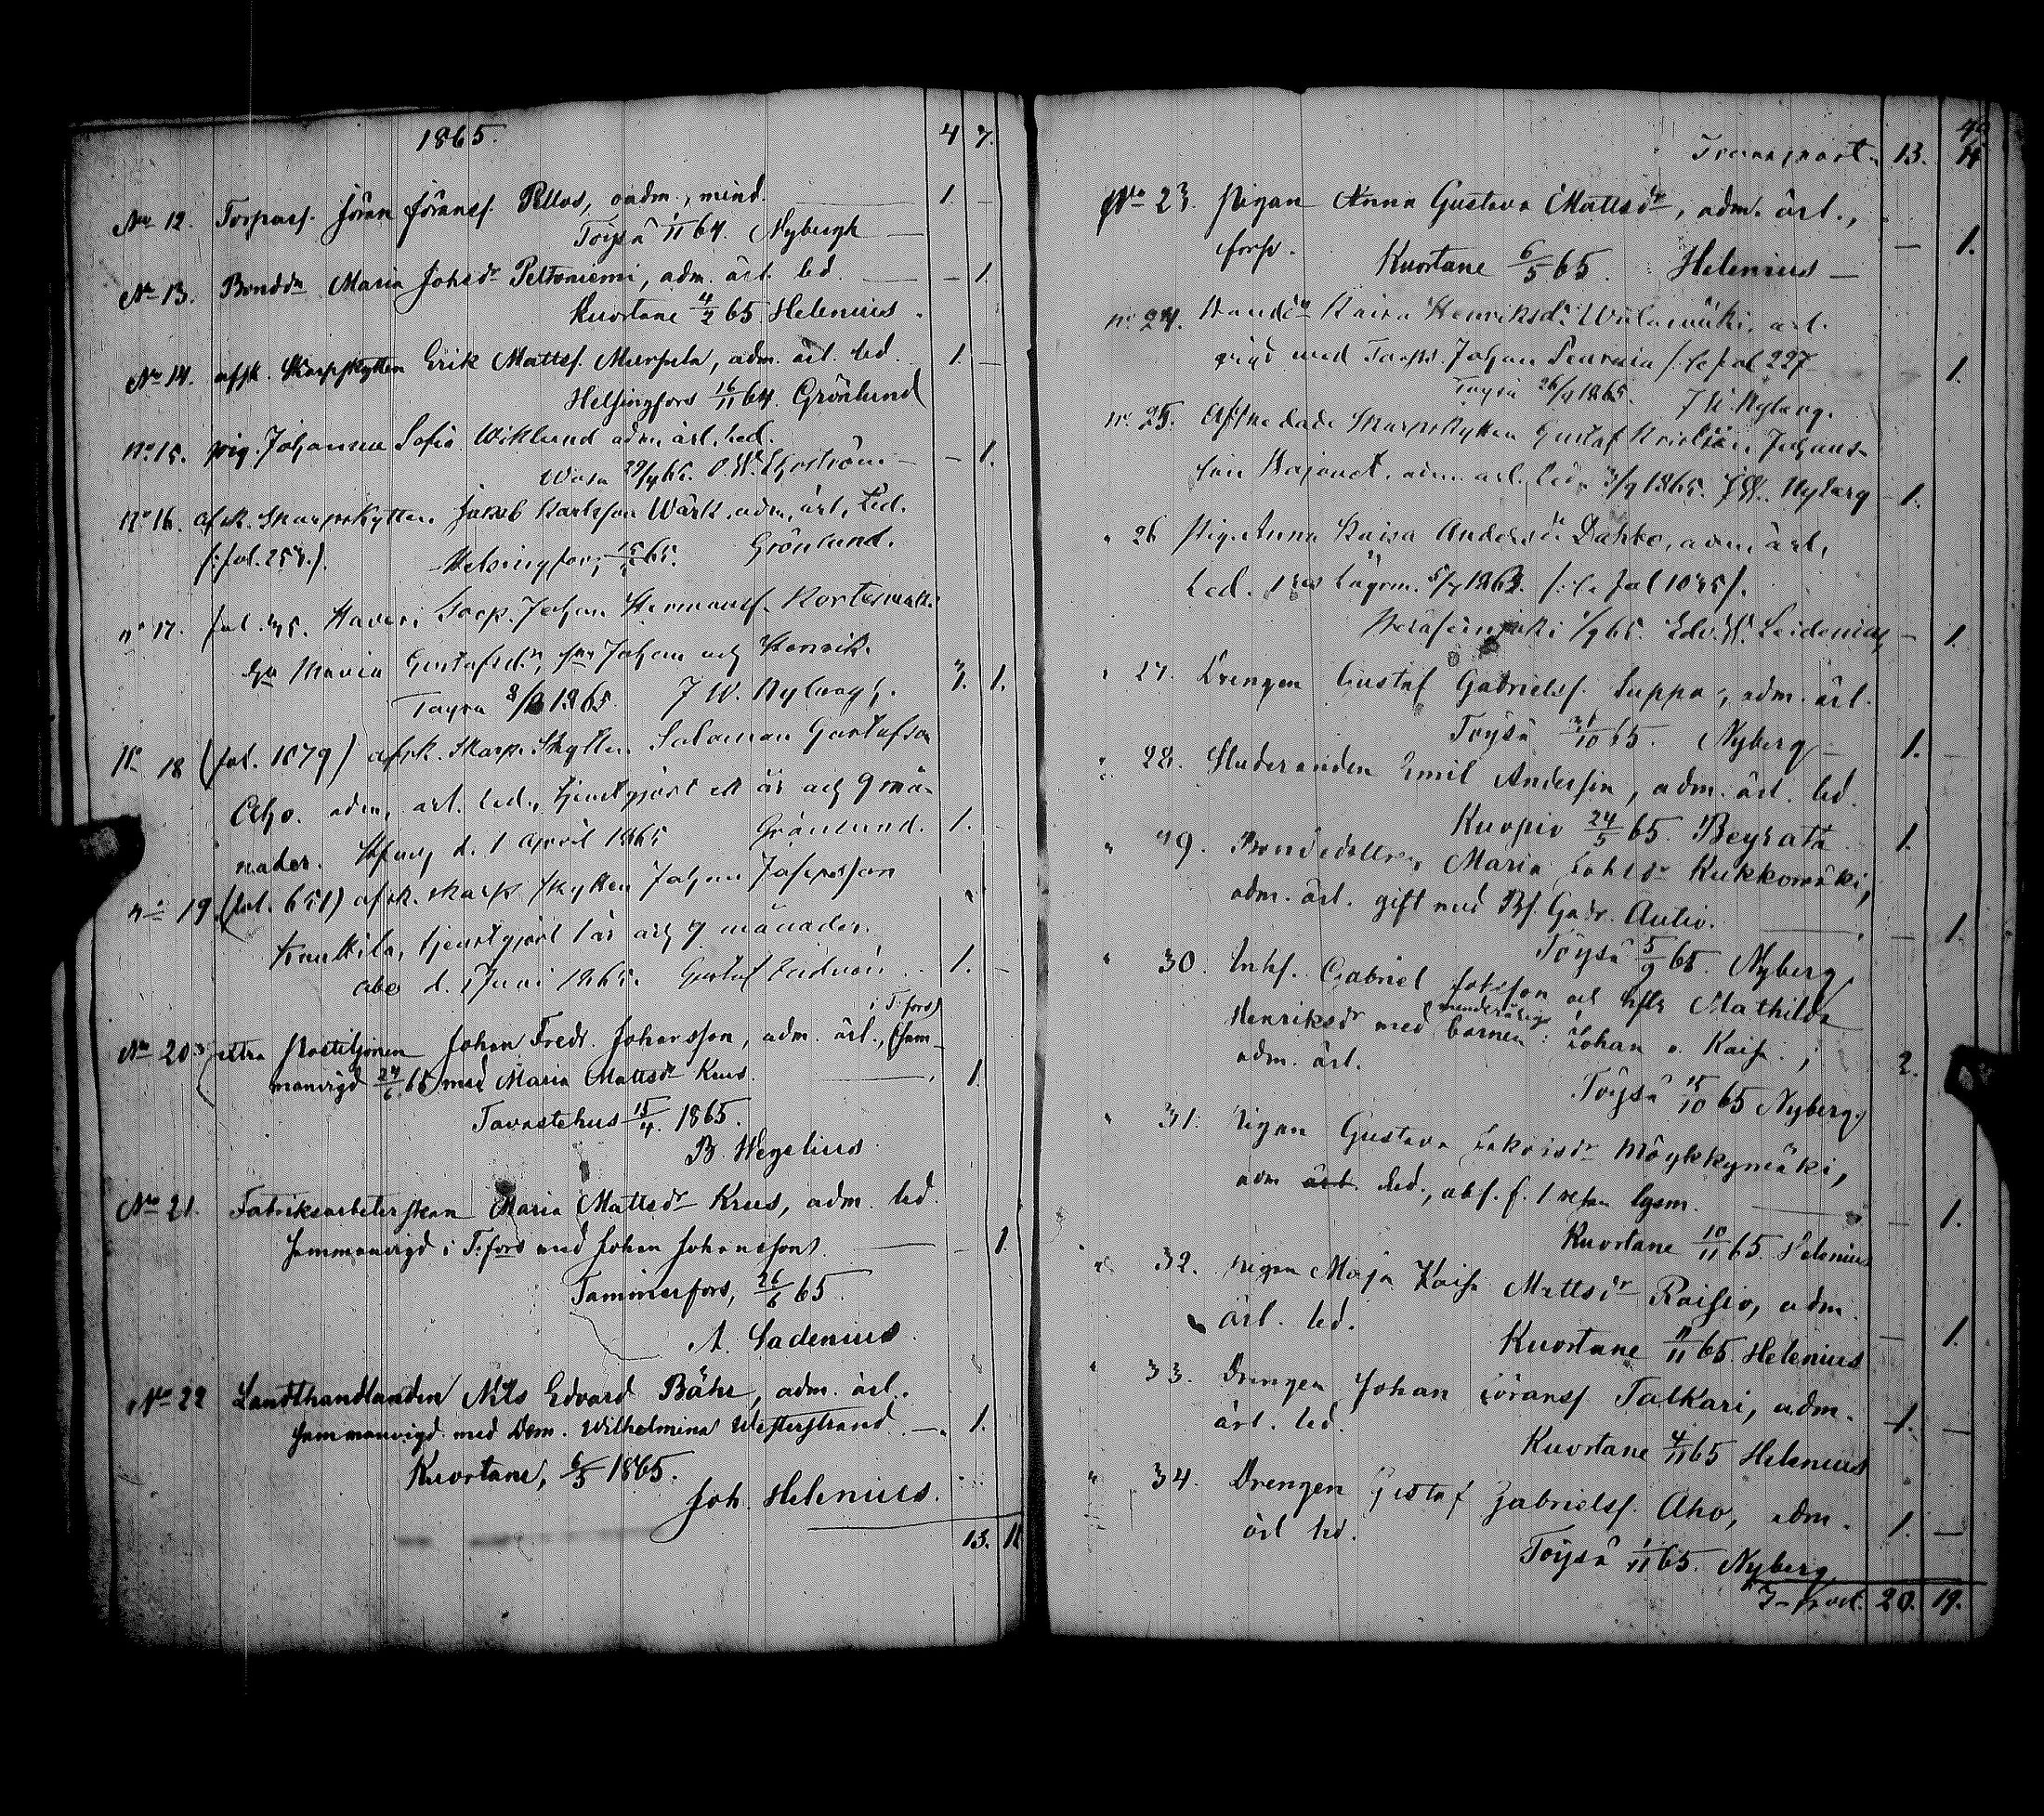 1865. 4 7.
No 12. Torpars. Jöran Jöranss. Pellos, oadm., mind. 1. –
Töysä 1/11 64. Nybergh –
No 13. Bondd. Maria Johsdr Peltoniemi, adm. ärl. led – 1.
Kuortane 4/2 65. Helenius.
No 14. afsk. Skarpskytten Erik Mattss. adm. ärl. led. 1. –
Helsingfors 16/11 64. Grönlund
No 15. pig. Johanna Sofia Wiklund adm. ärl. led.
Wasa 29/4 65. – 1.
No 16. afsk. Skarpskytten Jakob Karlsson Wärk. adm. ärl. Led.
(:fol. 257.) Helsingfors 15/ 65. Grönlund.
No 17. fol. 35. Torp. Johan Hermanss.
Maria Gustafsdr, Johan och Henrik
Töysä 8/ 1865 J W. Nybergh. 3. 1.
No 18 (fol. 1079) afsk. Skarp. Skytten Salomon Gustafson
Aho. adm. ärl. led., tjenstgjort ett år och 9 må-
nader. Hfors d. 1 April 1865 Grönlund. 1. –
No 19. (fol. 651) afsk. skarp. skytten Johan Josepsson
tjenstgjort 1 år och 9 månader.
Åbo d. 1 Juni 1865. Gustaf 1. –
i T:fors)
No 20. extra Postiljonen Johan Fredr. Johansson, adm. ärl., (sam-
manvigd 24/6 65) med Maria Mattsdr Krus. 1.
Tavastehus 15/4 1865.
B. Wegelius
No 21. Fabriksarbeterskan Maria Mattsdr Krus, adm. led.
sammanvigd i T:fors med Johan Johansson. – 1.
Tammerfors, 26/6 65.
A. Ladenius
No 22 Landthandlanden Nils Edvard Bähr, adm. ärl.
sammanvigd med Dem. Wilhelmina Westerstrand. – 1.
Kuortane, 6/5 1865.
Joh. Helenius.
13. 11
Transport. 13. 11
No 23. Pigan Anna Gustava Mattsdr, adm. ärl.,
förf. – 1.
Kuortane 6/5 65. Helenius –
No 24. Kaisa Henriksdr ärl.
vigd med Torp. Johan fol 227 1.
Töysä 26/9 1865. J W. Nyberg.
No 25. Afskedade Skarpskytten Gustaf Kristian Johans-
son adm. ärl. led. 3/9 1865. J W. Nyberg – 1.
" 26 Pig. Anna Kaisa Andersdr Dahlbo, adm. ärl.
Led. 1 res lägrm. 5/7 1863. fol 1035).
1/9 65. Edv. W. Leidenius – 1.
" 27. Drengen Gustaf Gabrielss. Luppa, adm. ärl.
Töysä 31/10 65. Nyberg – 1. –
" 28. Studeranden Emil Anderssin, adm. ärl. led.
Kuopio 24/5 65. Beyrath 1.
" 29. Bondedottren Maria Johsdr Kukkomäki,
adm. ärl. gift med Bs. Gabr. Autio. – 1.
Töysä 5/9 65. Nyberg
" 30. Inhs. Gabriel och hstr Mathilda
Henriksdr med minderåriga barnen: Johan o. Kaisa;
adm. ärl. 2.
Töysä 15/10 65 Nyberg.
" 31. Pigan Gustava Jakobsdr Möykkymäki,
adm ärl. led., abs. f. 1 resan lgsm. – 1.
Kuortane 10/11 65. Helenius
" 32. Pigan Maja Kaisa Mattsdr Raisio, adm.
ärl. led. – 1.
Kuortane 11/11 65. Helenius
" 33. Drengen Johan Jöranss Talkari, adm.
ärl. led. 1. –
Kuortane 4/11 65 Helenius
" 34. Drengen Gustaf Gabrielss. Aho, adm.
ärl led. 1. –
Töysä 1/11 65. Nyberg
20. 19.